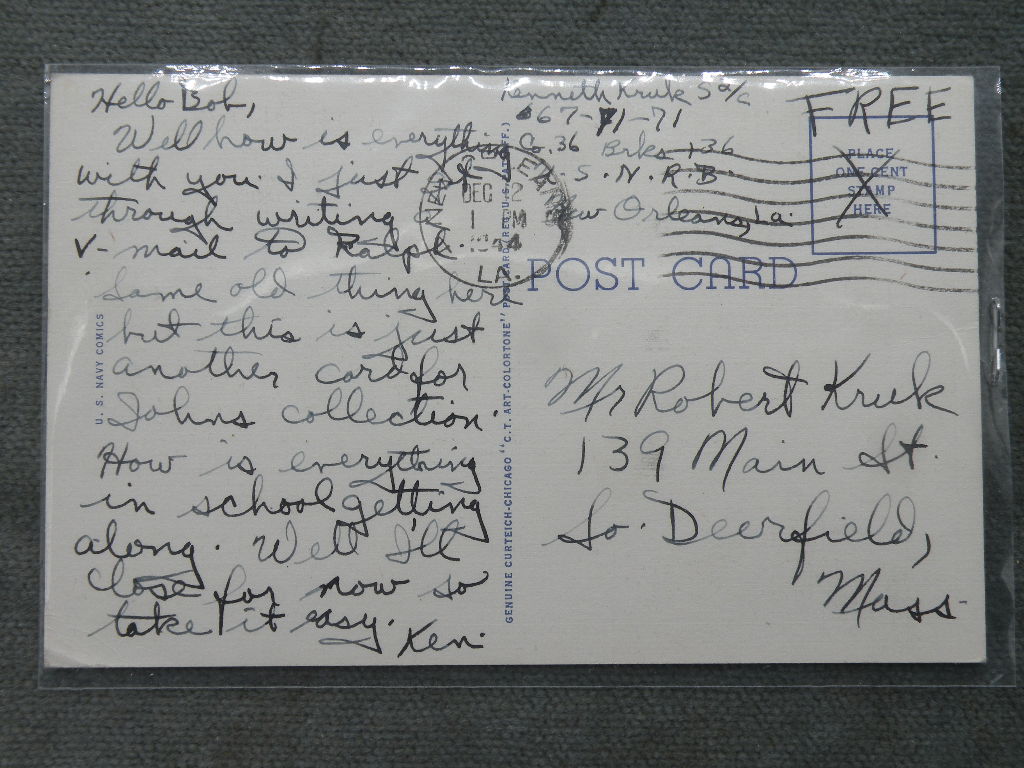 Hello Bob,
Well how is everything
with you. I just
through writing a
V-mail to Ralph.
Same old thing here
but this is just
another card for
Johns collection.
How is everything
in school getting
along. Well I'll
close for now so
take it easy.
Ken.
U. S. NAVY COMICS
GENUINE CURTEICH-CHICAGO "C.T. ART-COLORTONE" POST CARD (REG. U.S. PAT. OFF.)
Kenneth Kruk S
Co. 36 Brks 136
U. S. N. R. B.
New Orleans, La.
FREE
PLACE
ONE CENT
STAMP
HERE
NEW ORLEANS
DEC
1 M
1944
LA.
POST CARD
Mr Robert Kruk
139 Main St.
So. Deerfield,
Mass.